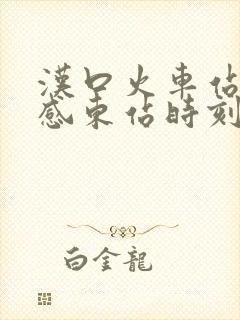 漢口火車佔
感東佔時刻
白金龍